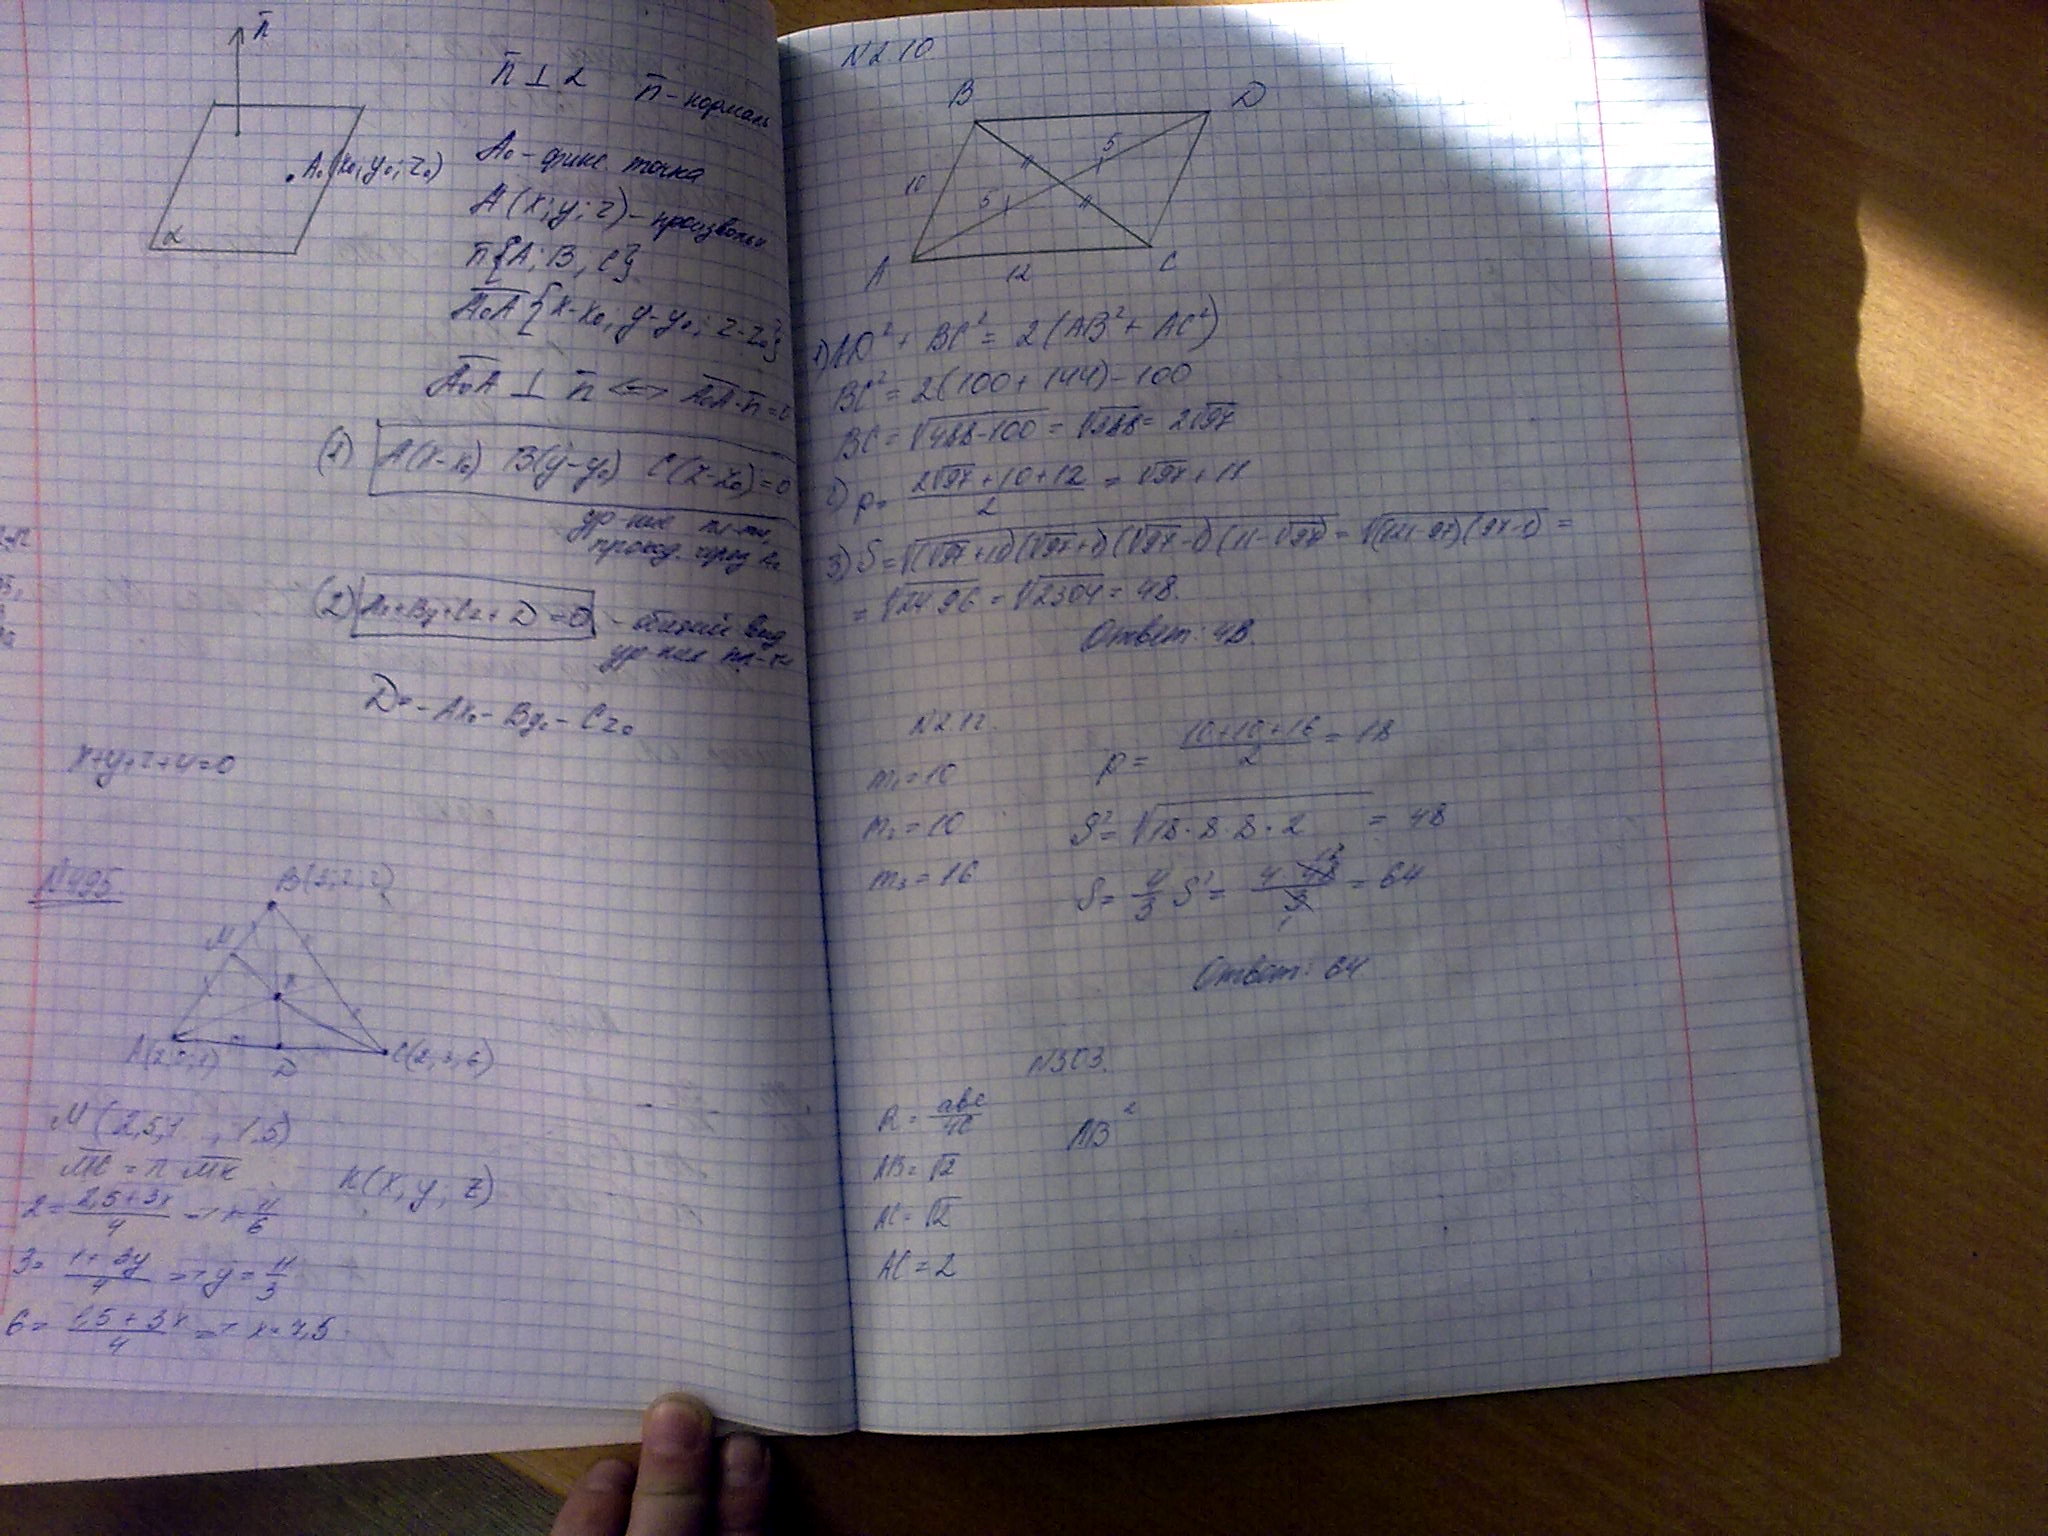 n̅
n̅ ⊥ α n̅ - нормаль
A₀(x₀; y₀; z₀)
α
A₀ - фикс. точка
A(x; y; z) - произвольн
n̅{A; B; C}
A₀A{x-x₀; y-y₀; z-z₀}
A₀A ⊥ n̅ <=> A₀A·n̅=0
(1) A(x-x₀) B(y-y₀) C(z-z₀)=0
ур-ние пл-ти,
проход. через A₀
(2) Ax+By+Cz+D=0 - общий вид
ур-ния пл-ти
D=-Ax₀-By₀-Cz₀
№495.
M
K
D
C(2; 3; 6)
M(2,5; 1; 1,5)
MC = n MK
K(x, y, z)
2= (2,5+3x)/4 → x= 11/6
3= (1+3y)/4 → y= 11/3
6= (1,5+3x)/4 → x=7,5
N210
B D
10 5 5
A 12 C
1) AD²+BC²=2(AB²+AC²)
BC²=2(100+144)-100
BC=√488-100=√388=2√97
2) p= (2√97+10+12)/2 = √97+11
3) S=√(√97+11)(√97+1)(√97-1)(11-√97)=√(121-97)(97-1)=
=√24·96=√2304=48.
Ответ: 48.
N212.
m₁=10 p= (10+10+16)/2 =18
m₂=10 S'=√18·8·8·2 =48
m₃=16 S= 4/3 S'= 4·48/3 =64
Ответ: 64
N303.
R= abc/4S AB²
AB=√2
AC=√2
AC=2